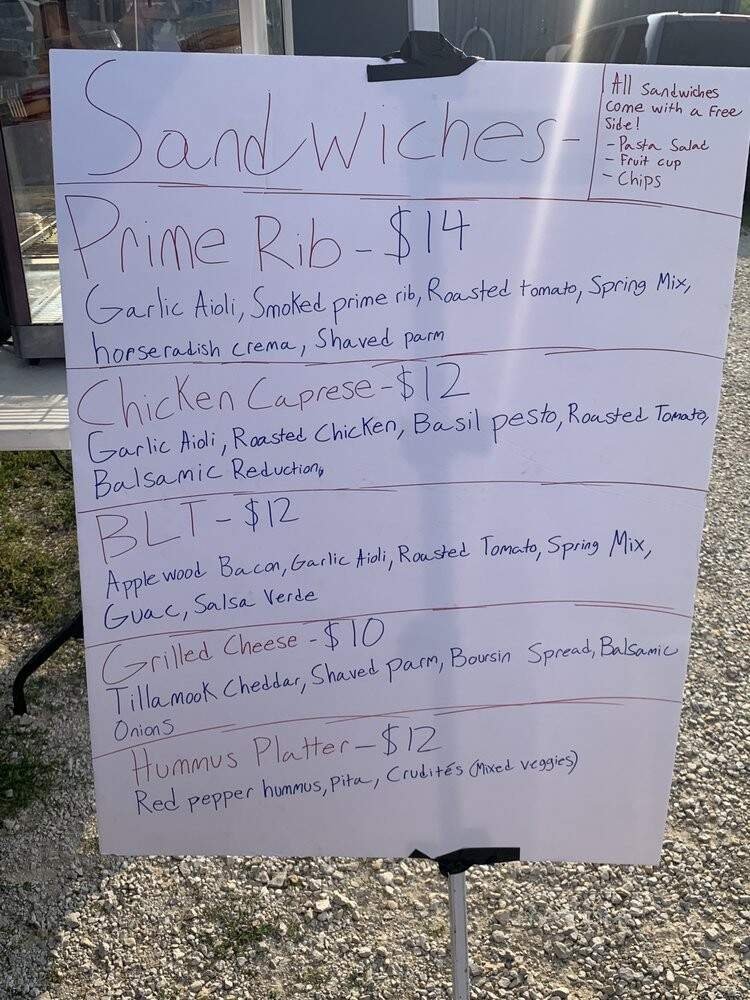 Sandwiches-
All Sandwiches
Come with a Free
Side!
- Pasta Salad
- Fruit cup
- Chips
Prime Rib - $14
Garlic Aioli, Smoked prime rib, Roasted tomato, Spring Mix,
horseradish crema, Shaved parm
Chicken Caprese - $12
Garlic Aioli, Roasted Chicken, Basil pesto, Roasted Tomato,
Balsamic Reduction,
BLT - $12
Applewood Bacon, Garlic Aioli, Roasted Tomato, Spring Mix,
Guac, Salsa Verde
Grilled Cheese - $10
Tillamook Cheddar, Shaved parm, Boursin Spread, Balsamic
Onions
Hummus Platter - $12
Red pepper hummus, Pita, Crudités (Mixed veggies)